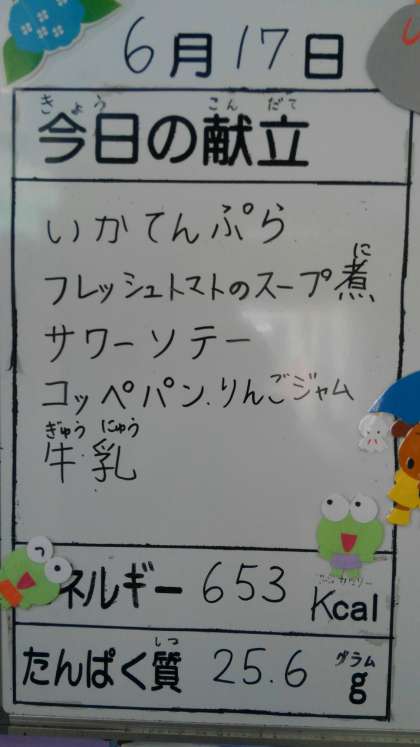 6月17日
きょう こんだて
今日の献立
いかてんぷら
に
フレッシュトマトのスープ煮
サワーソテー
コッペパン.りんごジャム
ぎゅうにゅう
牛乳
ネルギー 653 Kcal
しつ グラム
たんぱく質 25.6 g